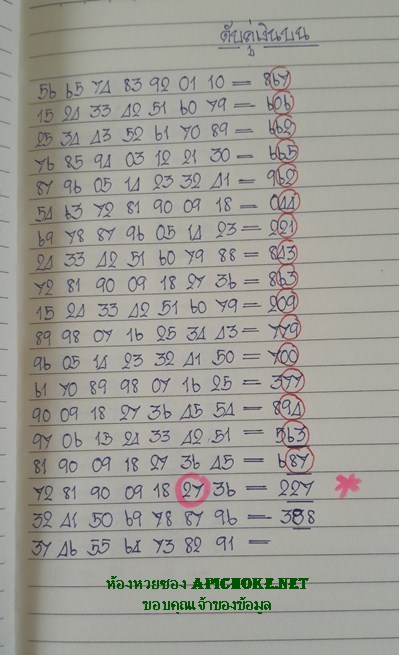 ดับคู่เงินบน
56 65 74 83 92 01 10 = 867
15 24 33 42 51 60 79 = 606
25 34 43 52 61 70 89 = 662
76 85 94 03 12 21 30 = 665
87 96 05 14 23 32 41 = 962
54 63 72 81 90 09 18 = 044
69 78 87 96 05 14 23 = 221
24 33 42 51 60 79 88 = 843
72 81 90 09 18 27 36 = 863
15 24 33 42 51 60 79 = 209
89 98 07 16 25 34 43 = 779
96 05 14 23 32 41 50 = 700
61 70 89 98 07 16 25 = 377
90 09 18 27 36 45 54 = 894
97 06 15 24 33 42 51 = 563
81 90 09 18 27 36 45 = 687
72 81 90 09 18 27 36 = 227
32 41 50 69 78 87 96 = 388
37 46 55 64 73 82 91 =
ห้องหวยซอง APICHOKE.NET
ขอบคุณเจ้าของข้อมูล